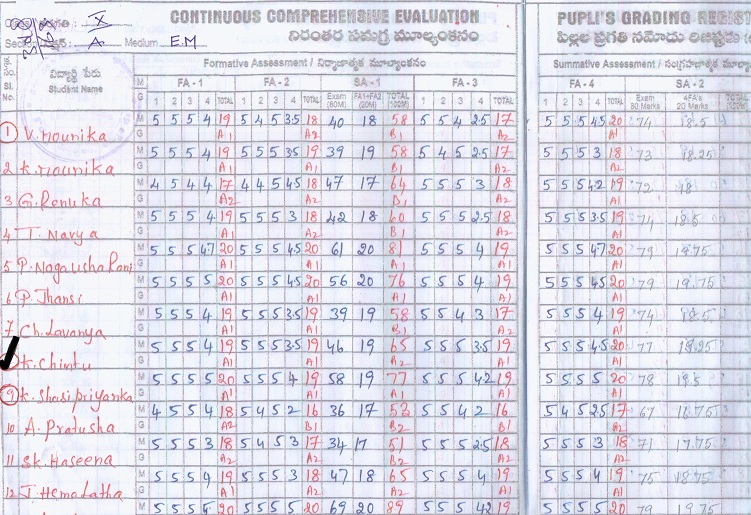 CONTINUOUS COMPREHENSIVE EVALUATION PUPLI'S GRADING REGIS
నిరంతర సమగ్ర మూల్యాంకనం పిల్లల ప్రగతి నమోదు రిజిష్టరు
X
A Medium E.M
Formative Assessment / నిర్మాణాత్మక మూల్యాంకనం Summative Assessment / సంగ్రహణాత్మక మూల్యాంకనం
Sl. No. విద్యార్థి పేరు Student Name
M FA - 1 FA - 2 SA - 1 FA - 3 FA - 4 SA - 2
G 1 2 3 4 TOTAL 1 2 3 4 TOTAL Exam (80M) FA1+FA2 (20M) TOTAL (100M) 1 2 3 4 TOTAL 1 2 3 4 TOTAL Exam 80 Marks 4FA's 20 Marks TOTAL
1 V. Mounika M 5 5 5 4 19 5 4 5 3.5 18 40 18 58 5 5 4 2.5 17 5 5 5 4.5 20 74 18.5
G A1 A2 B1 A2 A1
2 K. Mounika M 5 5 5 4 19 5 5 5 3.5 19 39 19 58 5 4 5 2.5 17 5 5 5 3 18 73 18.25
G A1 A1 B1 A2 A2
3 G. Renuka M 4 5 4 4 17 4 4 5 4.5 18 47 17 64 5 5 5 3 18 5 5 5 4.2 19 72 18
G A2 A2 B1 A2 A1
4 T. Navya M 5 5 5 4 19 5 5 5 3 18 42 18 60 5 5 5 2.5 18 5 5 5 3.5 19 74 18.5
G A1 A2 B1 A2 A1
5 P. Nagausha Rani M 5 5 5 4.7 20 5 5 5 4.5 20 61 20 81 5 5 5 4 19 5 5 5 4.7 20 79 19.75
G A1 A1 A1 A1 A1
6 P. Jhansi M 5 5 5 5 20 5 5 5 4.5 20 56 20 76 5 5 5 4 19 5 5 5 4.5 20 79 19.75
G A1 A1 A2 A1 A1
7 Ch. Lavanya M 5 5 5 4 19 5 5 5 3.5 19 39 19 58 5 5 4 3 17 5 5 5 4 19 74 18.5
G A1 A1 B1 A2 A1
K. Chintu M 5 5 5 4 19 5 5 5 3.5 19 46 19 65 5 5 5 3.5 19 5 5 5 4.5 20 77 19.25
G A1 A1 A2 A1 A1
9 K. Shasi priyanka M 5 5 5 5 20 5 5 5 4 19 58 19 77 5 5 5 4.2 19 5 5 5 5 20 78 19.5
G A1 A1 A2 A1 A1
10 A. Pratusha M 4 5 5 4 18 5 4 5 2 16 36 17 53 5 5 4 2 16 5 4 5 2.5 17 67 16.75
G A2 A2 B2 A2 A2
11 Sk. Haseena M 5 5 5 3 18 5 4 5 3 17 34 17 51 5 5 5 2.5 18 5 5 5 3 18 71 17.75
G A2 A2 B2 A2 A2
12 J. Hemalatha M 5 5 5 4 19 5 5 5 3 18 47 18 65 5 5 5 4 19 5 5 5 4 19 75 18.75
G A1 A2 A2 A1 A1
M 5 5 5 20 5 5 5 5 20 69 20 89 5 5 5 4.2 19 5 5 5 5 20 79 19.75